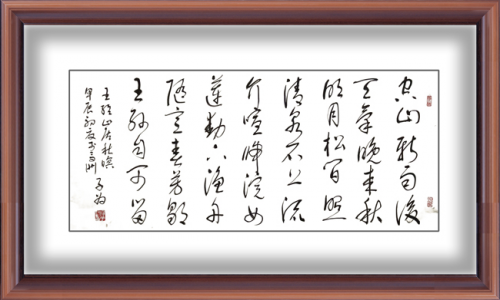 空山新雨後
天氣晚來秋
明月松間照
清泉石上流
竹喧歸浣女
蓮動下漁舟
隨意春芳歇
王孫自可留
王維山居秋暝